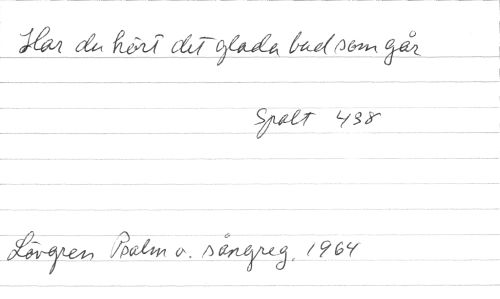 Har du hört det glada bud som går
Spalt 438
Lövgren Psalm o. sångreg. 1964